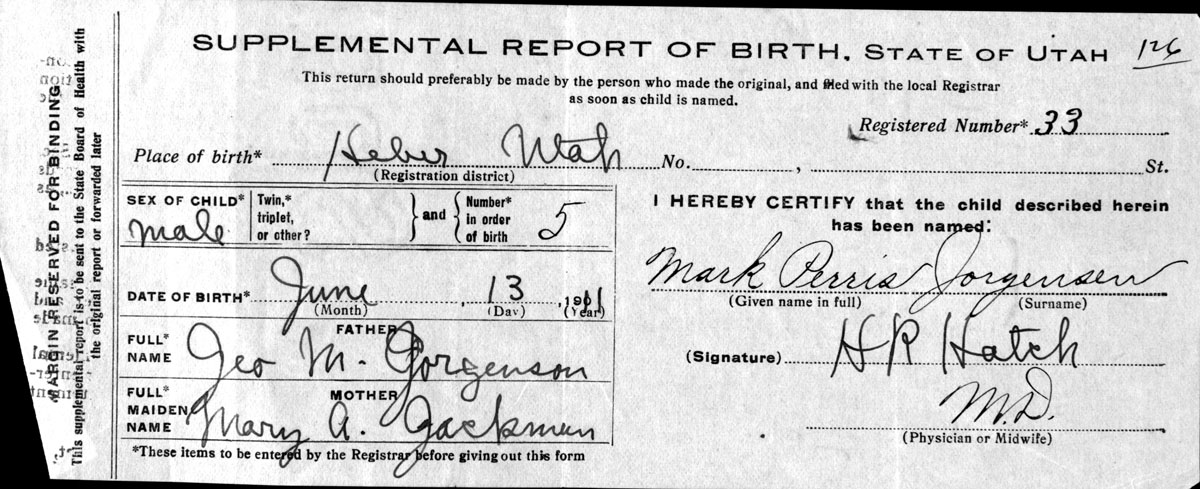 SUPPLEMENTAL REPORT OF BIRTH, STATE OF UTAH 126
This return should preferably be made by the person who made the original, and filed with the local Registrar
as soon as child is named.
Registered Number* 33
Place of birth* Heber Utah No. , St.
(Registration district)
SEX OF CHILD* male
Twin,* triplet, or other? } and { Number* in order of birth 5
I HEREBY CERTIFY that the child described herein
has been named:
Mark Perris Jorgensen
(Given name in full) (Surname)
DATE OF BIRTH* June , 13 , 1911
(Month) (Day) (Year)
FATHER
FULL* NAME Geo M. Jorgenson
(Signature) H R Hatch
M.D.
(Physician or Midwife)
MOTHER
FULL* MAIDEN NAME Mary A. Jackman
*These items to be entered by the Registrar before giving out this form
MARGIN RESERVED FOR BINDING.
This supplemental report is to be sent to the State Board of Health with
the original report or forwarded later